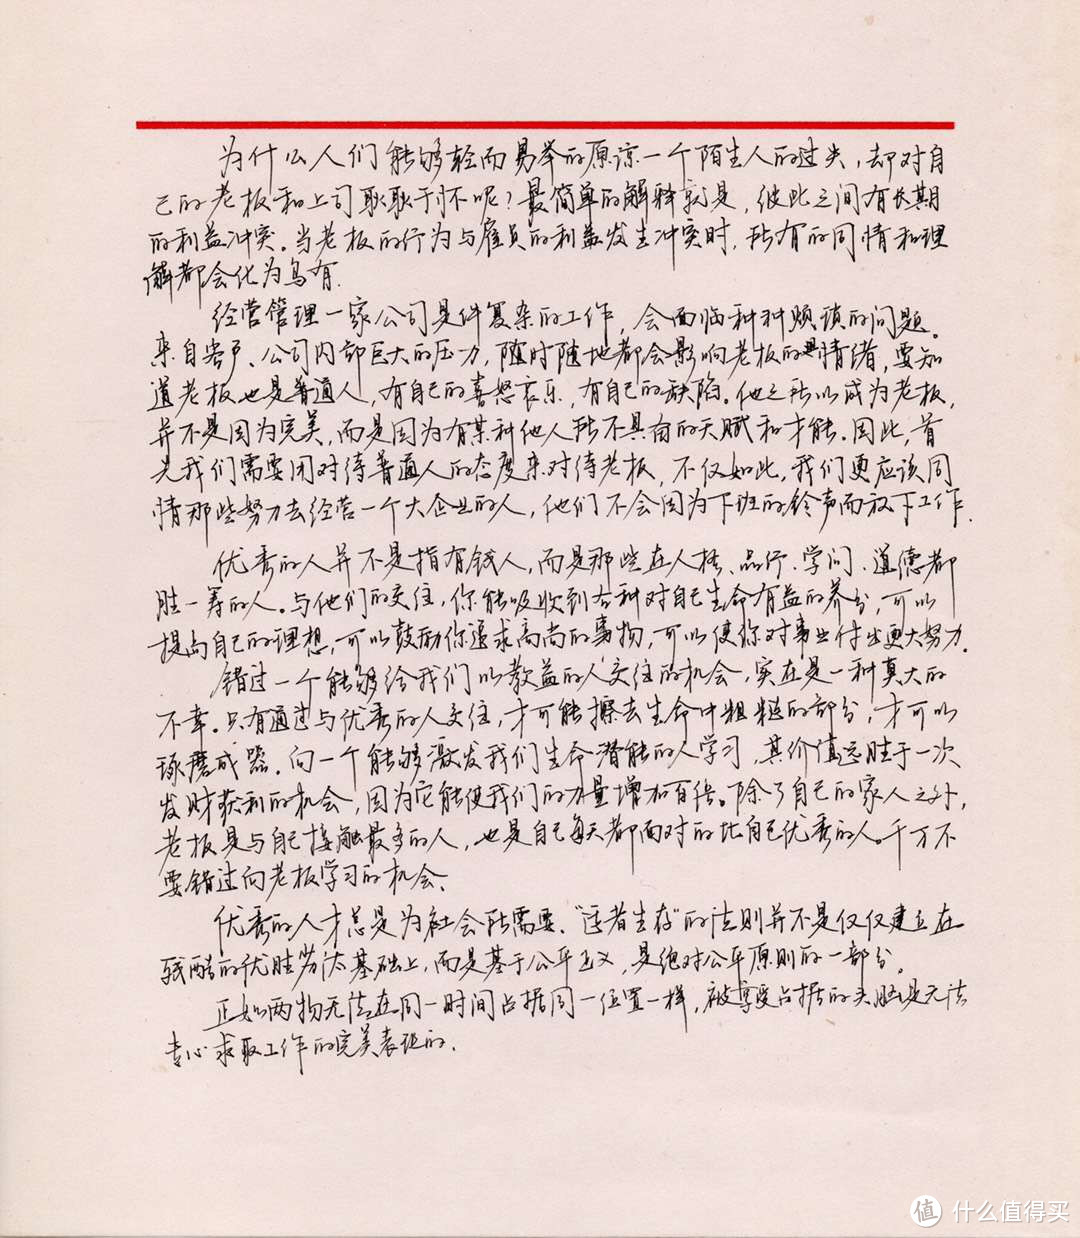 为什么人们能够轻而易举的原谅一个陌生人的过失，却对自
己的老板和上司耿耿于怀呢？最简单的解释就是，彼此之间有长期
的利益冲突。当老板的行为与雇员的利益发生冲突时，所有的同情和理
解都会化为乌有.
经营管理一家公司是件复杂的工作，会面临种种烦琐的问题。
来自客户、公司内部巨大的压力，随时随地都会影响老板的情绪，要知
道老板也是普通人，有自己的喜怒哀乐，有自己的缺陷。他之所以成为老板，
并不是因为完美，而是因为有某种他人所不具有的天赋和才能.因此，首
先我们需要用对待普通人的态度来对待老板，不仅如此，我们更应该同
情那些努力去经营一个大企业的人，他们不会因为下班的铃声而放下工作.
优秀的人并不是指有钱人，而是那些在人格、品行、学问、道德都
胜一筹的人。与他们的交往，你能吸收到各种对自己生命有益的养分，可以
提高自己的理想，可以鼓励你追求高尚的事物，可以使你对事业付出更大努力.
错过一个能够给我们以教益的人交往的机会，实在是一种莫大的
不幸。只有通过与优秀的人交往，才可能擦去生命中粗糙的部分，才可以
琢磨成器。向一个能够激发我们生命潜能的人学习，其价值远胜于一次
发财获利的机会，因为它能使我们的力量增加百倍。除了自己的家人之外，
老板是与自己接触最多的人，也是自己每天都面对的比自己优秀的人。千万不
要错过向老板学习的机会、
优秀的人才总是为社会所需要、“适者生存”的法则并不是仅仅建立在
残酷的优胜劣汰基础上，而是基于公平正义，是绝对公平原则的一部分。
正如两物无法在同一时间占据同一位置一样，被享受占据的头脑是无法
专心求取工作的完美表现的.
值 什么值得买